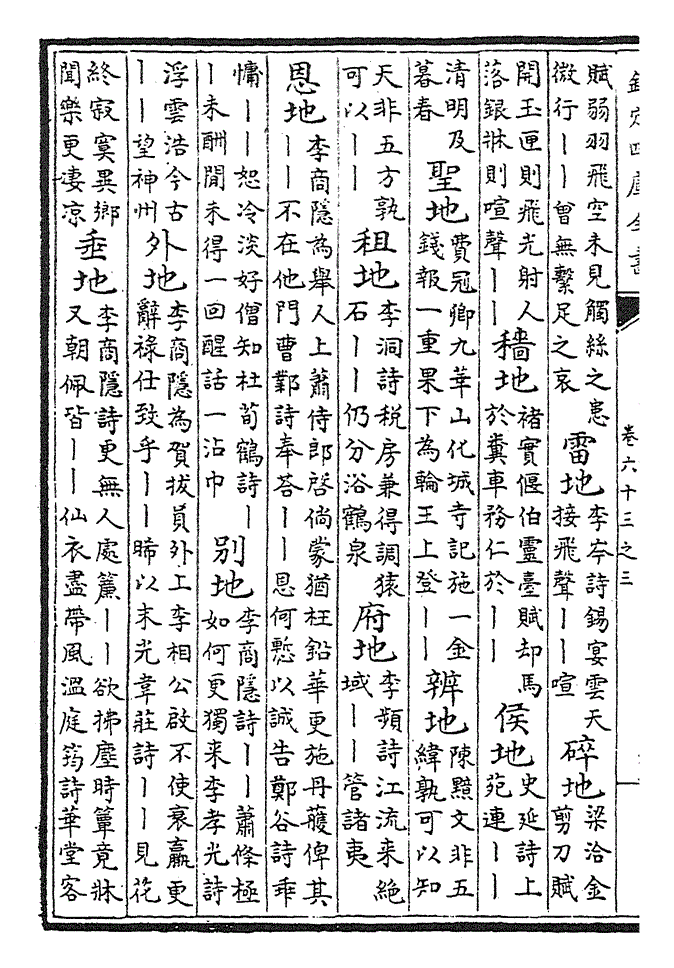 欽定四庫全書
卷六十三之三
賦弱羽飛空未見觸絲之患微行丨丨曾無繫足之哀 雷地 李岑詩錫宴雲天接飛聲丨丨喧 碎地 梁洽金剪刀賦
開玉匣則飛光射人落銀牀則喧聲丨丨 穡地 褚實偃伯靈臺賦却馬於糞車務仁於丨丨 侯地 史延詩上苑連丨丨
清明及暮春 聖地 費冠卿九華山化城寺記施一金錢報一重果下為輪王上登丨丨 辨地 陳黯文非五緯孰可以知
天非五方孰可以丨丨 租地 李洞詩税房兼得調猿石丨丨仍分浴鶴泉 府地 李頻詩江流來絕域丨丨管諸夷
恩地 李商隱為舉人上蕭侍郎啓倘蒙猶枉鉛華更施丹雘俾其丨丨不在他門曹鄴詩奉荅丨丨恩何慙以誠告鄭谷詩乖
慵丨丨恕冷淡好僧知杜荀鶴詩丨丨未酬閒未得一回醒話一沾巾 別地 李商隱詩丨丨蕭條極如何更獨來李孝光詩
浮雲浩今古丨丨望神州 外地 李商隱為賀拔員外上李相公啟不使衰羸更辭祿仕致乎丨丨晞以末光韋莊詩丨丨見花
終寂寞異鄉聞樂更凄凉 垂地 李商隱詩更無人處簾丨丨欲拂塵時簟竟牀又朝佩皆丨丨仙衣盡帶風溫庭筠詩華堂客